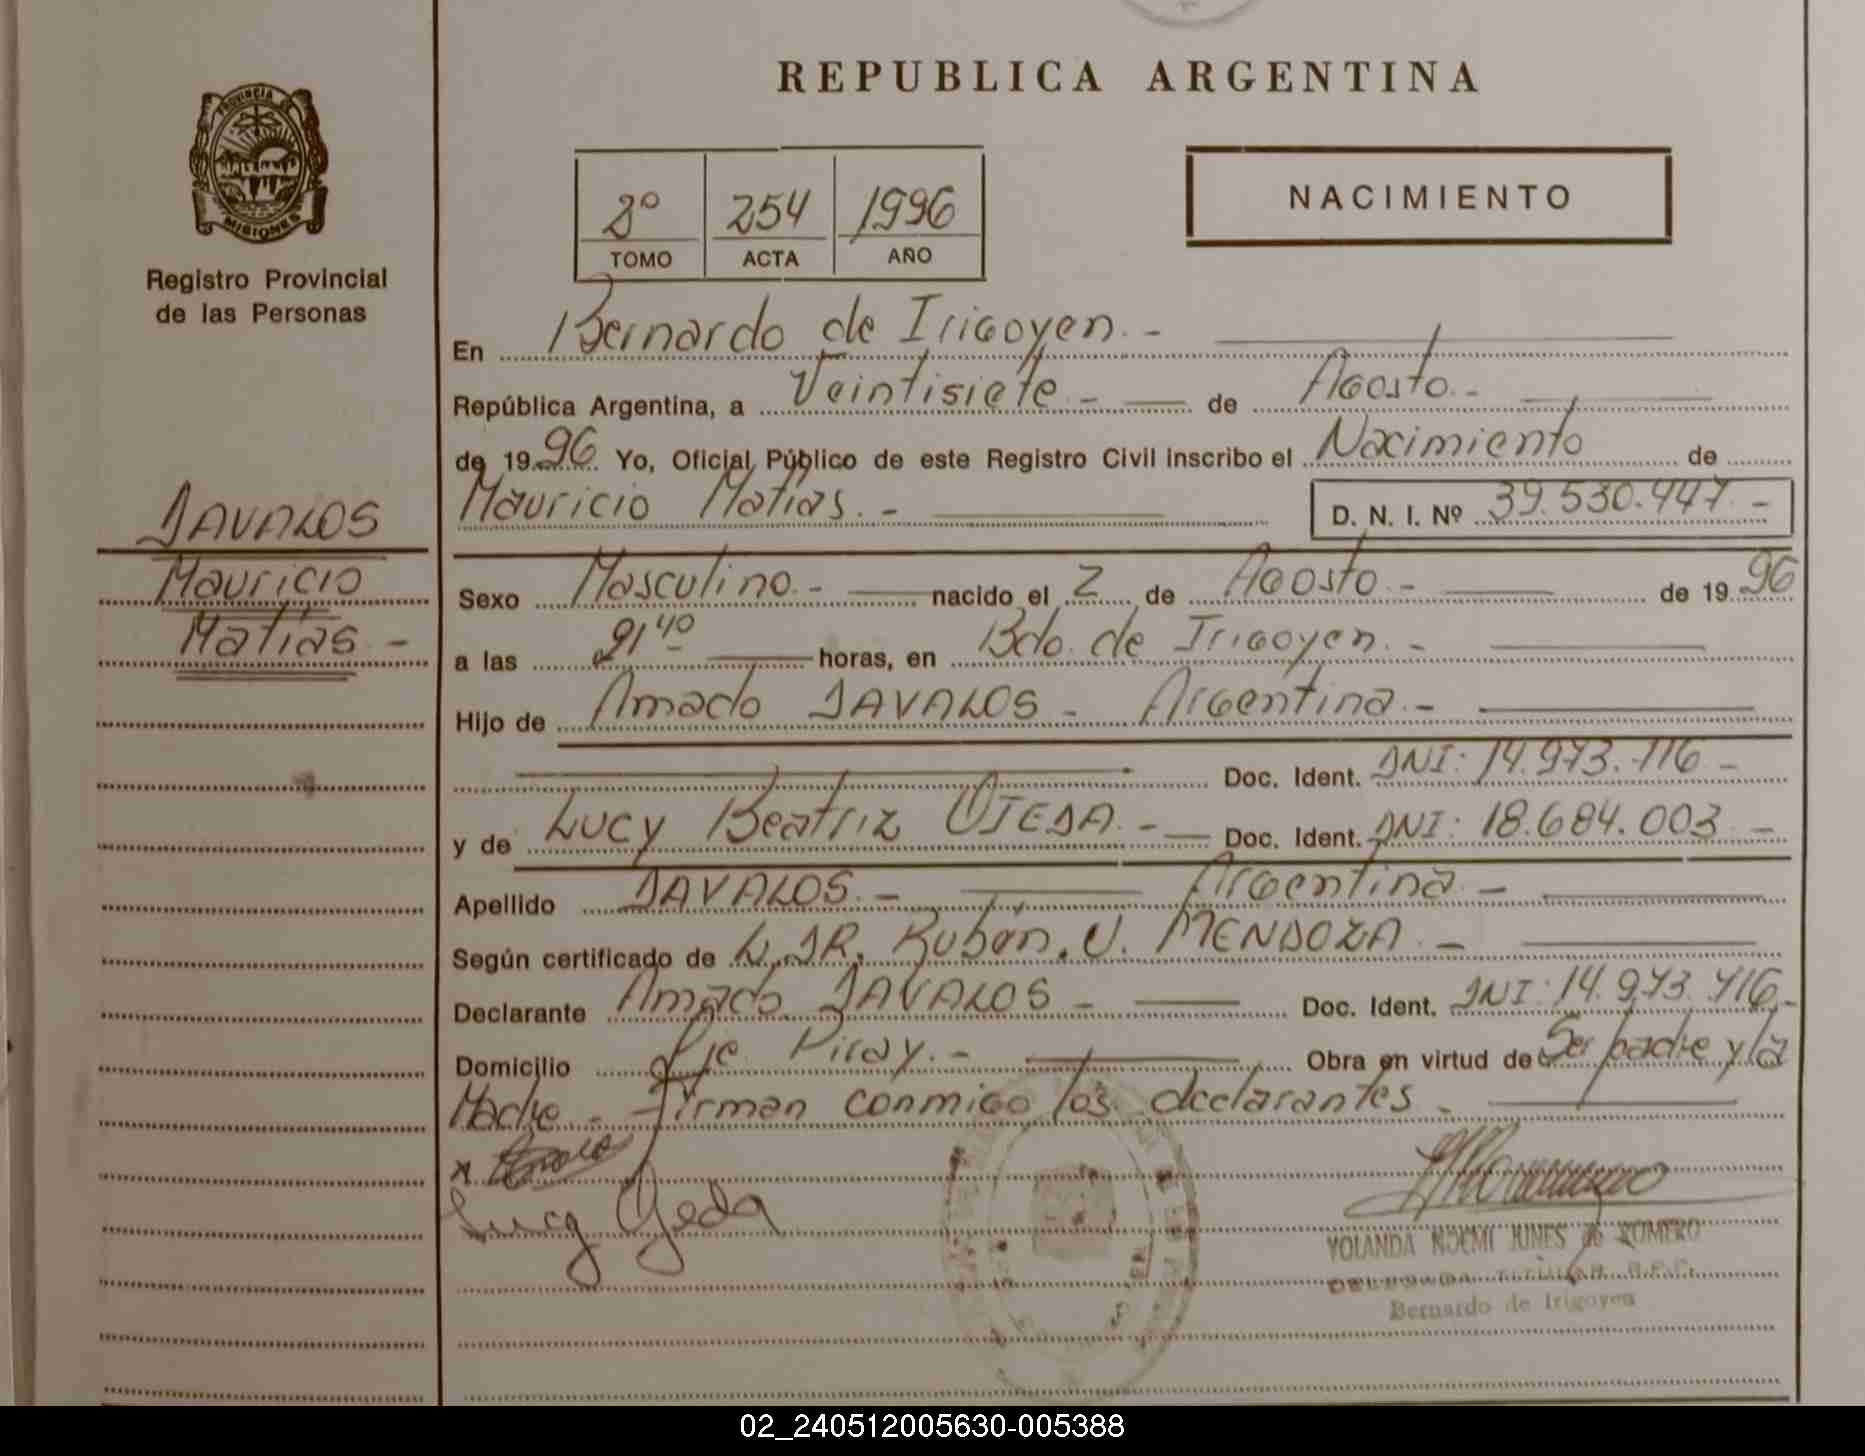 REPUBLICA ARGENTINA
PROVINCIA DE
MISIONES
Registro Provincial
de las Personas
2º 254 1996
TOMO ACTA AÑO
NACIMIENTO
En Bernardo de Irigoyen.-
República Argentina, a Veintisiete - de Agosto.-
de 1996 Yo, Oficial Público de este Registro Civil inscribo el Nacimiento de
Mauricio Matias.- D. N. I. Nº 39.530.447.-
DAVALOS
Mauricio
Matías -
Sexo Masculino.- nacido el 2 de Agosto.- de 1996
a las 21 40 horas, en Bdo. de Irigoyen.-
Hijo de Amado DAVALOS - Argentina.-
Doc. Ident. DNI: 14.973.716 -
y de Lucy Beatriz OJEDA.- Doc. Ident. DNI: 18.684.003 -
Apellido DAVALOS.- Argentina -
Según certificado de DR. Rubén. U. MENDOZA.-
Declarante Amado DAVALOS - Doc. Ident. DNI: 14.973.716-
Domicilio Pje Piray.- Obra en virtud de Ser padre y la
Madre - firman conmigo los declarantes -
x
Lucy Ojeda
YOLANDA NOEMI JUNES de ROMERO
DELEGADA TITULAR R.P.P.
Bernardo de Irigoyen
02_240512005630-005388